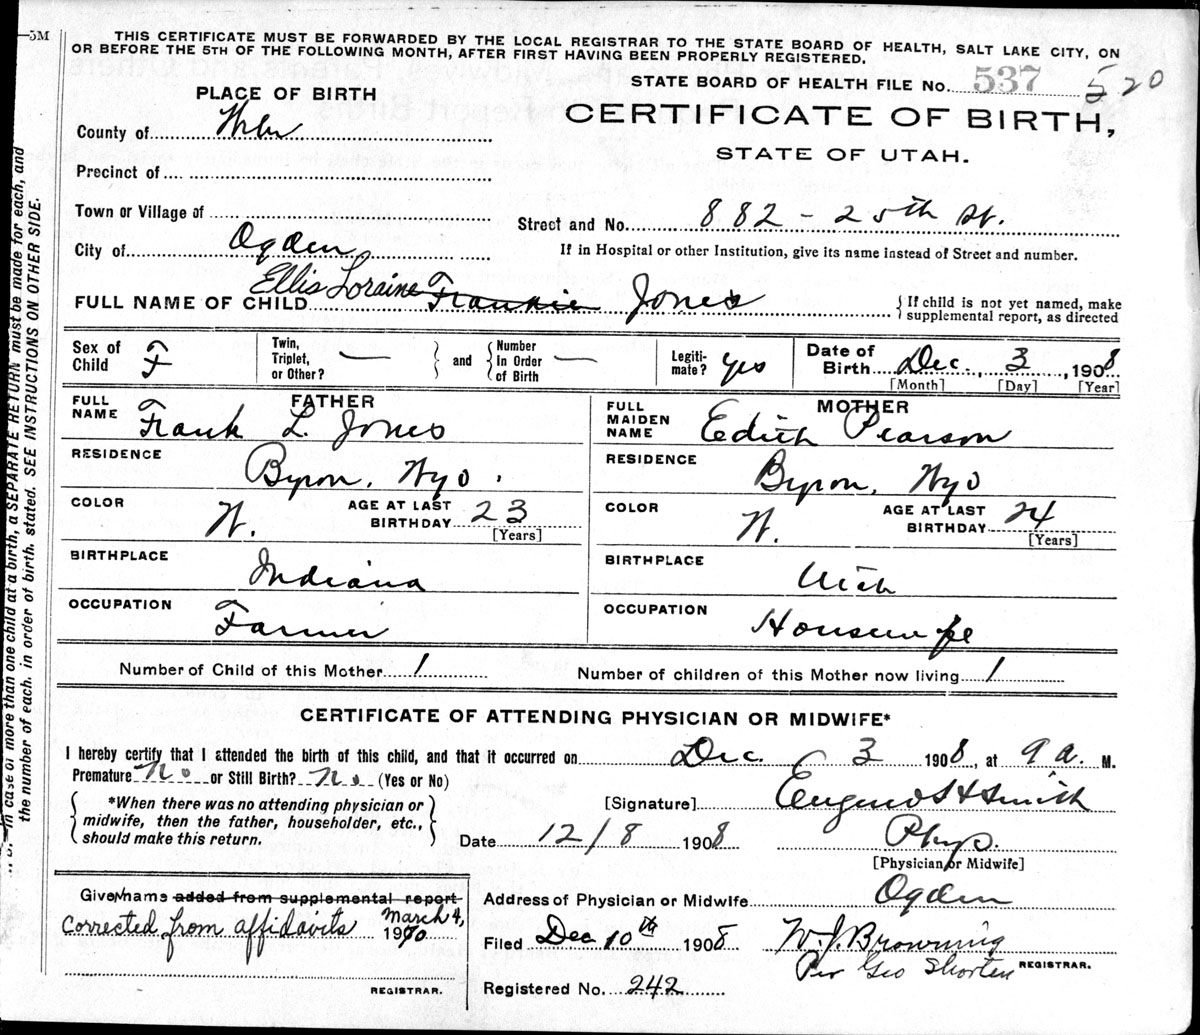 5M
THIS CERTIFICATE MUST BE FORWARDED BY THE LOCAL REGISTRAR TO THE STATE BOARD OF HEALTH, SALT LAKE CITY, ON
OR BEFORE THE 5TH OF THE FOLLOWING MONTH, AFTER FIRST HAVING BEEN PROPERLY REGISTERED.
STATE BOARD OF HEALTH FILE No. 537 520
PLACE OF BIRTH
CERTIFICATE OF BIRTH,
STATE OF UTAH.
County of Weber
Precinct of
Town or Village of
Street and No. 882 - 25th St.
City of Ogden
If in Hospital or other Institution, give its name instead of Street and number.
Ellis Loraine
FULL NAME OF CHILD Frankie Jones
{ If child is not yet named, make
supplemental report, as directed
Sex of Child F
Twin, Triplet, or Other? —
and
Number In Order of Birth —
Legiti-mate? Yes
Date of Birth Dec. 3, 1908
[Month] [Day] [Year]
FATHER
FULL NAME Frank L. Jones
RESIDENCE Byron, Wyo.
COLOR W.
AGE AT LAST BIRTHDAY 23
[Years]
BIRTHPLACE Indiana
OCCUPATION Farmer
MOTHER
FULL MAIDEN NAME Edith Pearson
RESIDENCE Byron, Wyo
COLOR W.
AGE AT LAST BIRTHDAY 24
[Years]
BIRTHPLACE Utah
OCCUPATION Housewife
Number of Child of this Mother 1
Number of children of this Mother now living 1
CERTIFICATE OF ATTENDING PHYSICIAN OR MIDWIFE*
I hereby certify that I attended the birth of this child, and that it occurred on Dec. 3 1908, at 9 a. M.
Premature No or Still Birth? No (Yes or No)
*When there was no attending physician or
midwife, then the father, householder, etc.,
should make this return.
[Signature] H Smith
Date 12/8 1908
Phys.
[Physician or Midwife]
Given name added from supplemental report
Corrected from affidavits March 4, 1970
REGISTRAR.
Address of Physician or Midwife Ogden
Filed Dec 10th 1908
W. J. Browning
Per Geo Shorten
REGISTRAR.
Registered No. 242
In case of more than one child at a birth, a SEPARATE RETURN must be made for each, and
the number of each, in order of birth, stated. SEE INSTRUCTIONS ON OTHER SIDE.